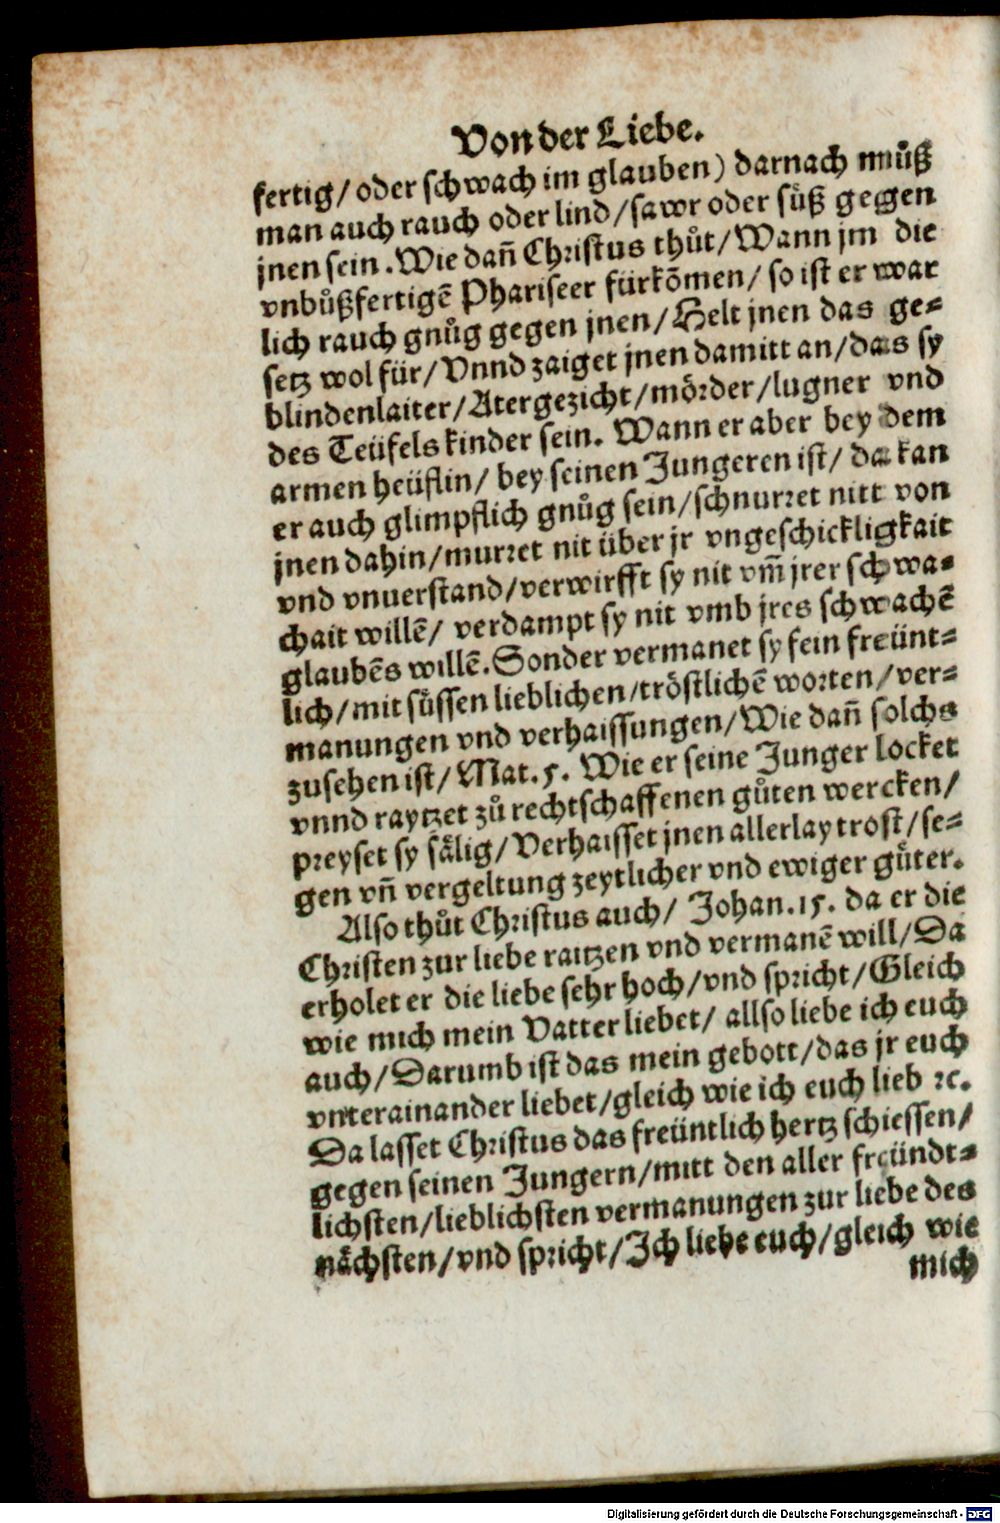 Von der Liebe.
fertig/ oder schwach im glauben) darnach muͦß
man auch rauch oder lind/ sawr oder suͤß gegen
jnen sein. Wie dañ Christus thuͦt/ Wann jm die
vnbuͦßfertigẽ Phariseer fürkõmen/ so ist er war
lich rauch gnuͦg gegen jnen/ Helt jnen das ge⸗
setz wol für/ Vnnd zaiget jnen damitt an/ das sy
blindenlaiter/ Atergezicht/ moͤrder/ lugner vnd
des Teüfels kinder sein. Wann er aber bey dem
armen heüflin/ bey seinen Jungeren ist/ da kan
er auch glimpflich gnuͦg sein/ schnurret nitt von
jnen dahin/ murret nit über jr vngeschickligkait
vnd vnuerstand/ verwirfft sy nit vm̃ jrer schwa⸗
chait willẽ/ verdampt sy nit vmb jres schwachẽ
glaubẽs willẽ. Sonder vermanet sy fein freünt⸗
lich/ mit suͤssen lieblichen/ troͤstlichẽ worten/ ver⸗
manungen vnd verhaissungen/ Wie dañ solchs
zusehen ist/ Mat. 5. Wie er seine Junger locket
vnnd raytzet zuͦ rechtschaffenen guͦten wercken/
preyset sy saͤlig/ Verhaisset jnen allerlay trost/ se⸗
gen vñ vergeltung zeytlicher vnd ewiger guͤter.
Also thuͦt Christus auch/ Johan. 15. da er die
Christen zur liebe raitzen vnd vermanẽ will/ Da
erholet er die liebe sehr hoch/ vnd spricht/ Gleich
wie mich mein Vatter liebet/ allso liebe ich euch
auch/ Darumb ist das mein gebott/ das jr euch
vnterainander liebet/ gleich wie ich euch lieb ⁊c.
Da lasset Christus das freüntlich hertz schiessen/
gegen seinen Jungern/ mitt den aller freündt⸗
lichsten/ lieblichsten vermanungen zur liebe des
naͤchsten/ vnd spricht/ Jch liebe euch/ gleich wie
mich
Digitalisierung gefördert durch die Deutsche Forschungsgemeinschaft - DFG